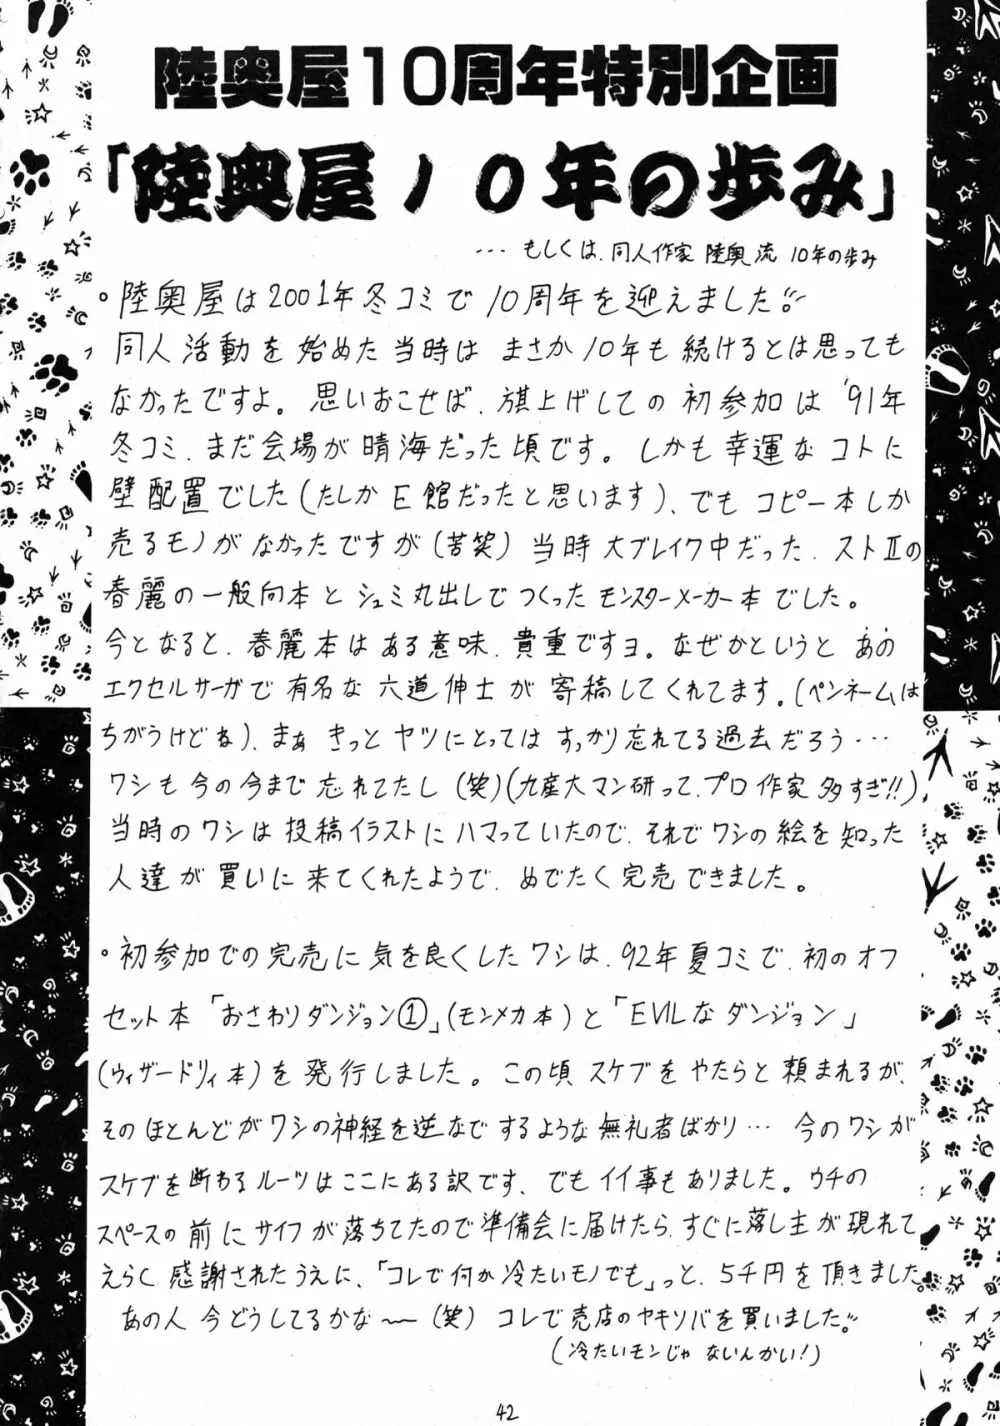 陸奥屋10周年特別企画
「陸奥屋10年の歩み」
･･･もしくは、同人作家 陸奥流 10年の歩み
。陸奥屋は2001年冬コミで10周年を迎えました!!
同人活動を始めた当時は まさか10年も続けるとは思っても
なかったですよ。思いおこせば、旗上げしての初参加は'91年
冬コミ、まだ会場が晴海だった頃です。しかも幸運なコトに
壁配置でした(たしかE館だったと思います)、でもコピー本しか
売るモノがなかったですが(苦笑)当時大ブレイク中だった、ストⅡの
春麗の一般向本とシュミ丸出しでつくったモンスターメーカー本でした。
今となると、春麗本はある意味、貴重ですヨ。なぜかというとあの
エクセルサーガで有名な六道伸士が寄稿してくれてます。(ペンネームは
ちがうけどね)、まぁ きっとヤツにとってはすっかり忘れてる過去だろう･･･
ワシも今の今まで忘れてたし(笑)(九産大マン研って、プロ作家多すぎ!!)
当時のワシは投稿イラストにハマっていたので、それでワシの絵を知った
人達が買いに来てくれたようで、めでたく完売できました。
。初参加での完売に気を良くしたワシは、92年夏コミで、初のオフ
セット本「おさわりダンジョン①」(モンメカ本)と「EVILなダンジョン」
(ウィザードリィ本)を発行しました。この頃スケブをやたらと頼まれるが、
そのほとんどがワシの神経を逆なでするような無礼者ばかり･･･ 今のワシが
スケブを断わるルーツはここにある訳です、でもイイ事もありました。ウチの
スペースの前にサイフが落ちてたので準備会に届けたら、すぐに落し主が現れて
えらく感謝されたうえに、「コレで何か冷たいモノでも」っと、5千円を頂きました。
あの人 今どうしてるかな〜(笑) コレで売店のヤキソバを買いました!!
(冷たいモンじゃ ないんかい!)
42